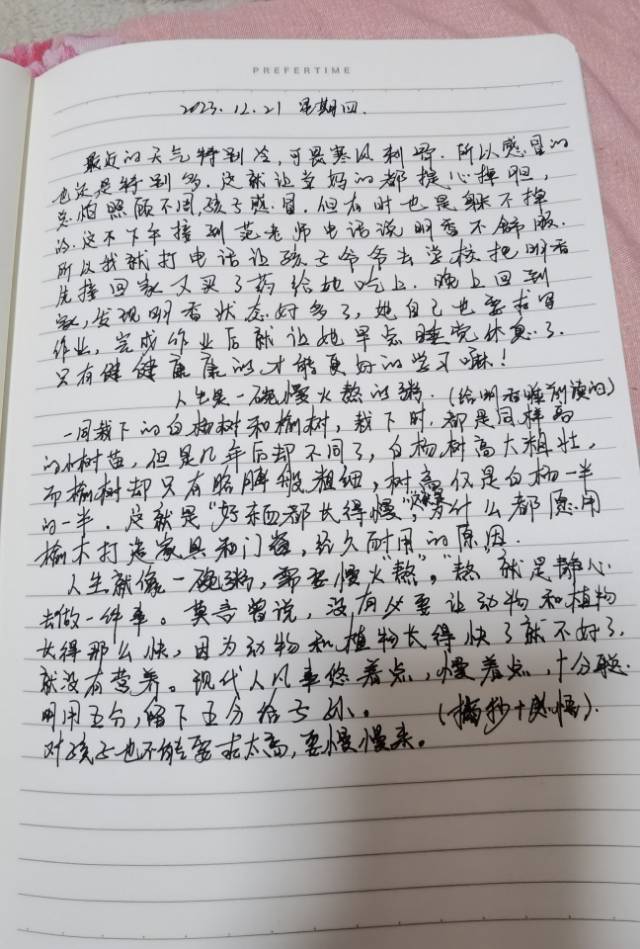 PREFERTIME
2023.12.21 星期四.
最近的天气特别冷,可畏寒风刺骨.所以感冒的
也还是特别多.这就让当妈的都提心掉胆,
总怕照顾不周,孩子感冒.但有时也是躲不掉
的.这不下午接到范老师电话说明香不舒服.
所以我就打电话让孩子爷爷去学校把明香
先接回家又买了药给她吃上.晚上回到
家,发现明香状态好多了,她自己也要求写
作业,完成作业后就让她早点睡觉休息了.
只有健健康康的才能更好的学习嘛!
人生是一碗慢火熬的粥.(给明香睡前读的)
一同栽下的白杨树和榆树,栽下时,都是同样高
的小树苗,但是几年后却不同了,白杨树高大粗壮,
而榆树却只有胳膊般粗细,树高仅是白杨一半
的一半.这就是"好东西都长得慢",为什么都愿用
榆木打造家具和门窗,经久耐用的原因.
人生就像一碗粥,需要慢火"熬"。"熬"就是静心
去做一件事。莫言曾说,没有必要让动物和植物
长得那么快,因为动物和植物长得快了就不好了,
就没有营养。现代人凡事悠着点,慢着点,十分聪
明用五分,留下五分给子孙。(摘抄+感悟).
对孩子也不能要求太高,要慢慢来。